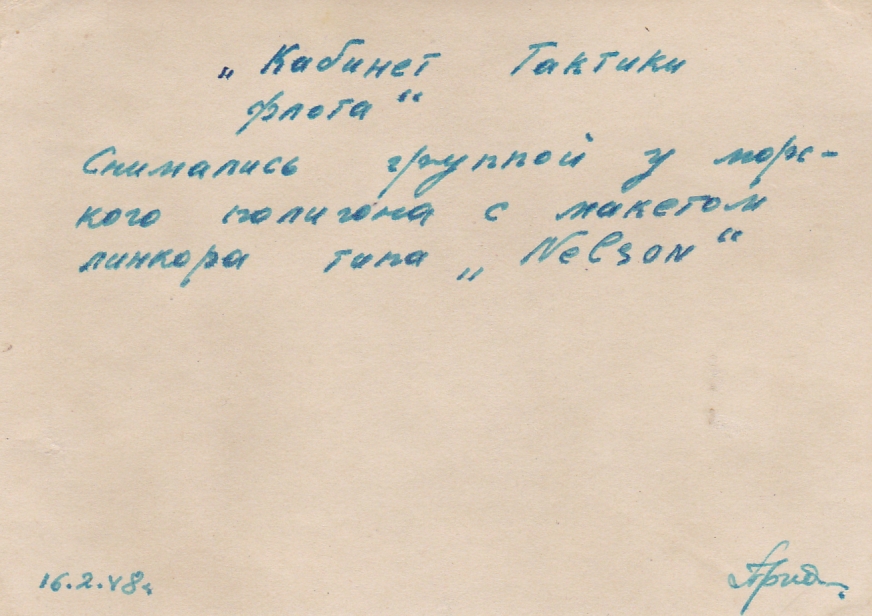 „Кабинет Тактики
флота“
Снимались группой у морс-
кого полигона с макетом
линкора типа „Nelson“
16.2.48г.